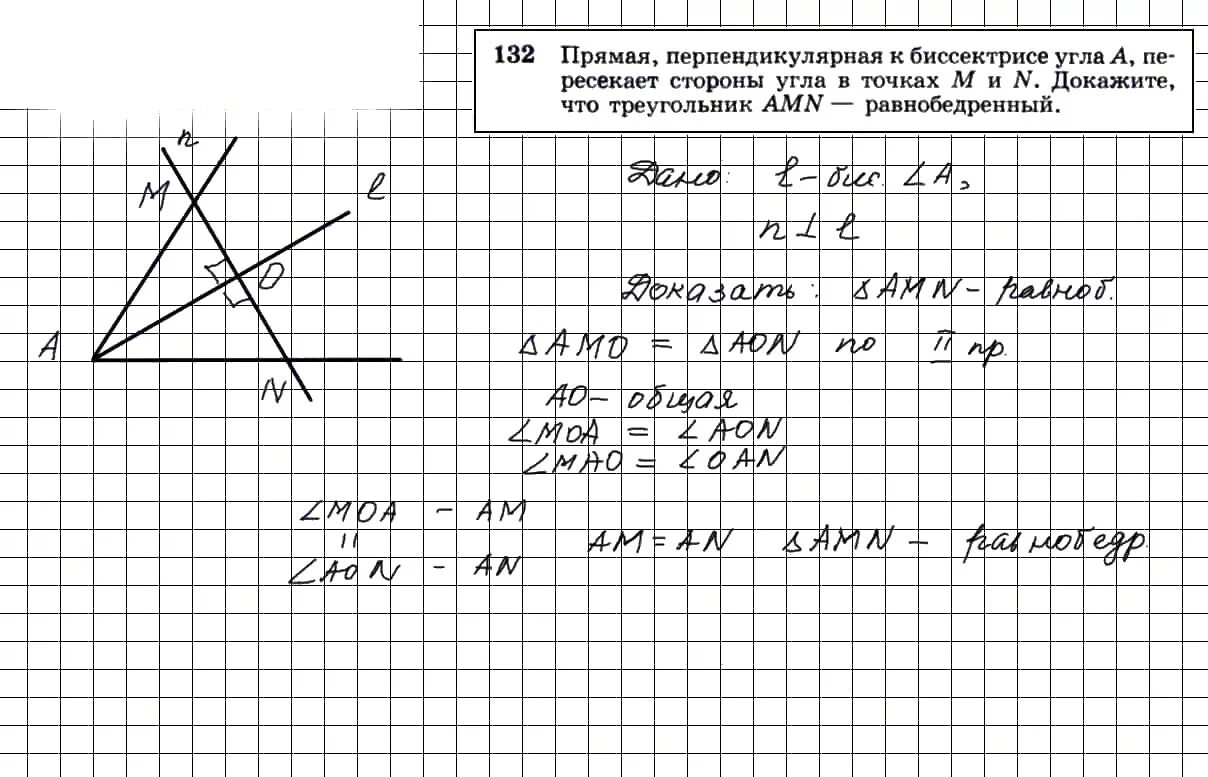 132 Прямая, перпендикулярная к биссектрисе угла A, пе-
ресекает стороны угла в точках M и N. Докажите,
что треугольник AMN — равнобедренный.
n
M
ℓ
O
A
N
Дано: ℓ - бис. ∠A,
n ⊥ ℓ
Доказать: △AMN - равноб.
△AMO = △AON по II пр.
AO - общая
∠MOA = ∠AON
∠MAO = ∠OAN
∠MOA - AM
=
∠AON - AN
AM = AN △AMN - равнобедр.